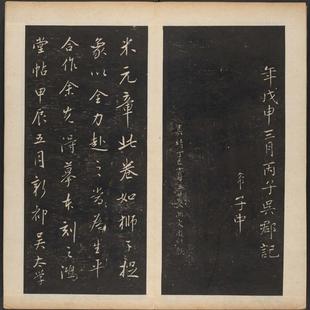 年戊申三月丙子吳郡記
米元章此卷如獅子捉
象以全力赴之當為生平
合作余先得摹本刻之鴻
堂帖甲辰五月新都吳太學